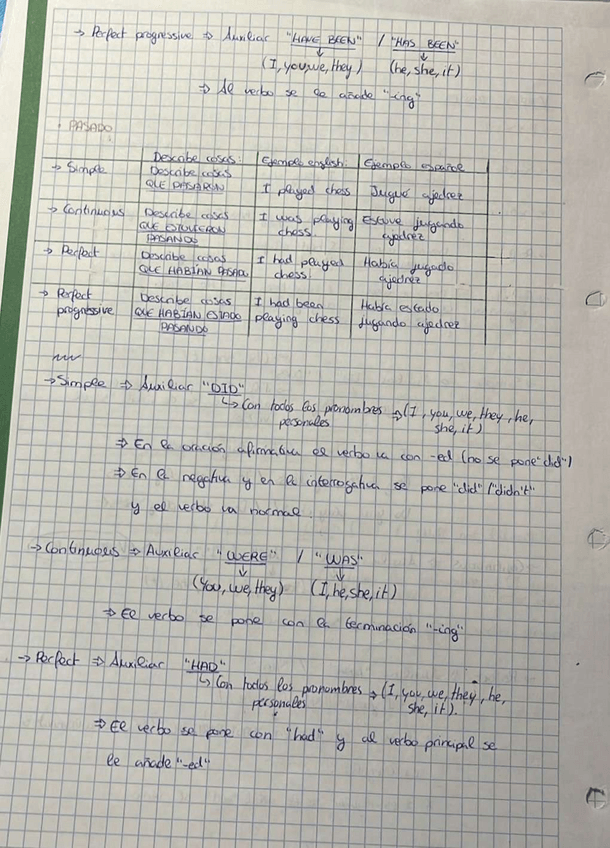 → Perfect progressive ⇒ Auxiliar "HAVE BEEN" / "HAS BEEN"
(I, you, we, they) (he, she, it)
⇒ Al verbo se le añade "-ing"
· PASADO:
Describe cosas: Ejemplo english: Ejemplo español
→ Simple Describe cosas QUE PASARON I played chess Jugué ajedrez
→ Continuous Describe cosas QUE ESTUVIERON PASANDO I was playing chess. Estuve jugando ajedrez
→ Perfect Describe cosas QUE HABÍAN PASADO I had played chess Había jugado ajedrez
→ Perfect progressive Describe cosas QUE HABÍAN ESTADO PASANDO I had been playing chess Había estado jugando ajedrez
→ Simple ⇒ Auxiliar "DID"
↳ Con todos los pronombres ⇒ (I, you, we, they, he,
personales she, it)
⇒ En la oración afirmativa el verbo va con -ed (no se pone "did")
⇒ En la negativa y en la interrogativa se pone "did" / "didn't"
y el verbo va normal.
→ Continuous ⇒ Auxiliar "WERE" / "WAS"
(You, we, they) (I, he, she, it)
⇒ El verbo se pone con la terminación "-ing"
→ Perfect ⇒ Auxiliar "HAD"
↳ Con todos los pronombres ⇒ (I, you, we, they, he,
personales she, it).
⇒ El verbo se pone con "had" y al verbo principal se
le añade "-ed"